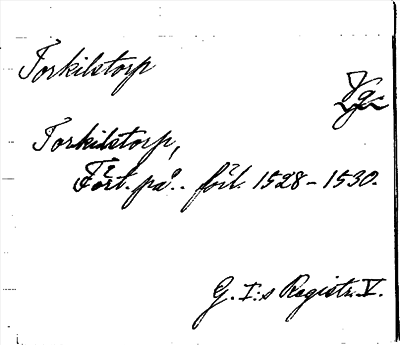 Torkilstorp
Vg.
Torkilstorp,
Fört. på.. förl. 1528-1530.
G. I:s Registr. V.